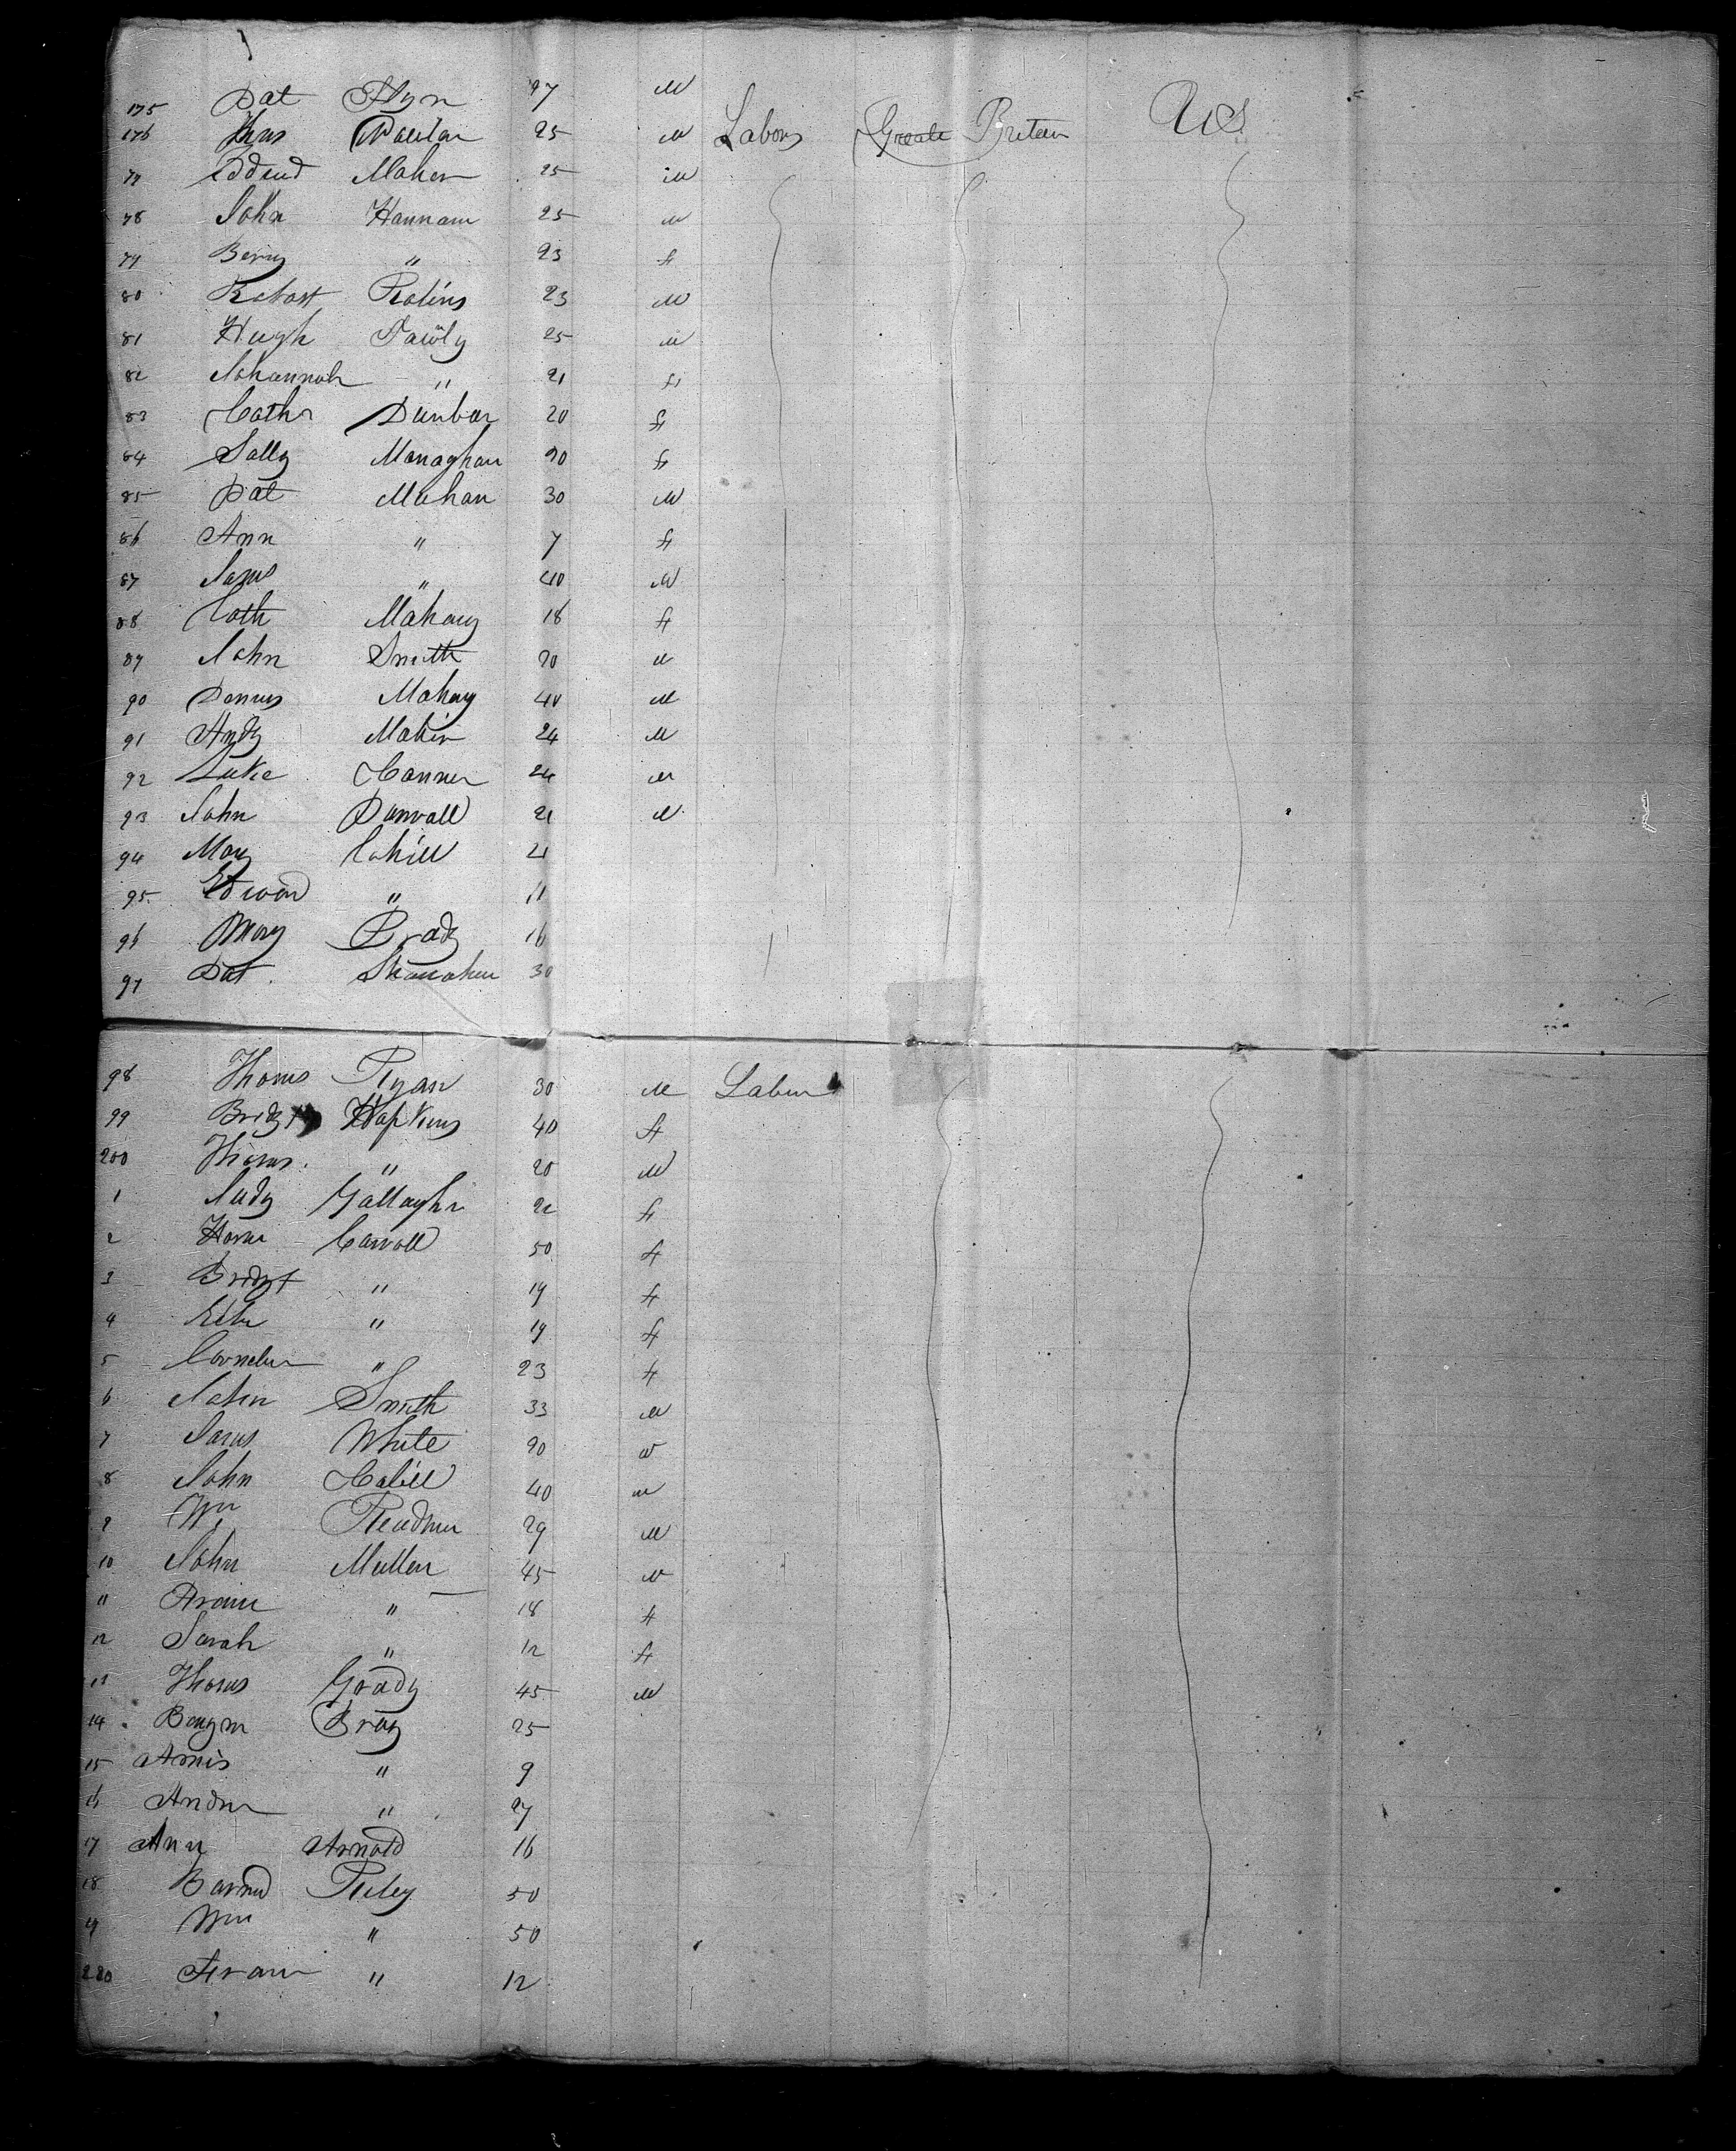 175 Pat Flyn 27 M
176 Thos 25 M Labors Greate Britain US
77 Edmd Maher 25 M
78 John Hannam 25 M
79 23 f
80 Robart Robins 23 M
81 Hugh 25 M
82 Johannah " 21 f
83 Cathr Dunbar 20 f
84 Sally Monaghan 20 f
85 Pat Mahan 30 M
86 Ann " 7 f
87 James " 40 M
88 Cath Mahony 18 f
89 John Smith 20 M
90 Dennis Mahony 40 M
91 Andy Maher 24 M
92 Luke Conner 24 M
93 John Darvall 21 M
94 Mary Cahill 21
95 Edward " 11
96 Mary Brady 16
97 Pat Shanahan 30
98 Thomas Ryan 30 M Labor
99 Bridgt Hopkins 40 f
200 Thomas " 20 M
1 Judy Gallaghr f
2 Carroll 50 f
3 Bridgt " 19 f
4 Ellen " 19 f
5 Cornelius " 23 f
6 John Smith 33 M
7 James White 20 M
8 John Cahill 40 M
9 Wm 29 M
10 John Mullen 45 M
11 " 18 f
12 Sarah " 12 f
13 Thomas Grady 45 M
14 Bray 25
15 " 9
16 Andrew " 27
17 Ann Arnold 16
18 Barnd Riley 50
19 Wm " 50
220 " 12